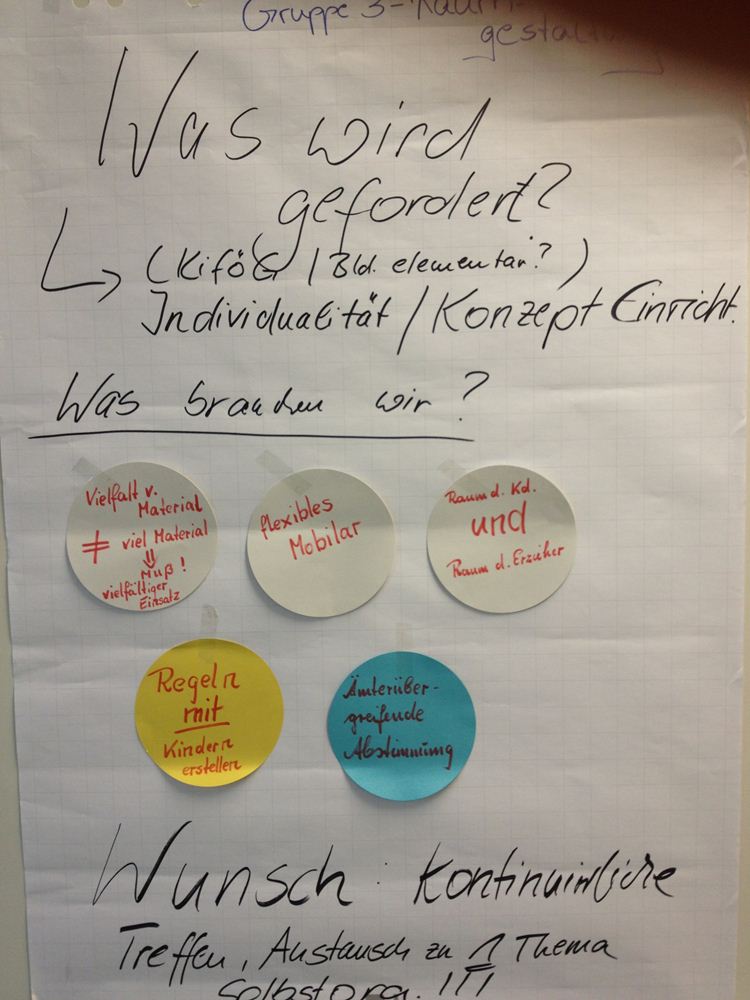 Gruppe 3 - Raum-
gestaltung
Was wird
gefordert?
(KiföG / Bld. elementar? )
Individualität / Konzept Einricht.
Was brauchen wir?
Vielfalt v.
Material
≠ viel Material
⇓
Muß!
vielfältiger
Einsatz
flexibles
Mobilar
Raum d. Kd.
und
Raum d. Erzieher
Regeln
mit
Kindern
erstellen
Ämterüber-
greifende
Abstimmung
Wunsch: Kontinuierliche
Treffen, Austausch zu 1 Thema
Selbstorg. !!!